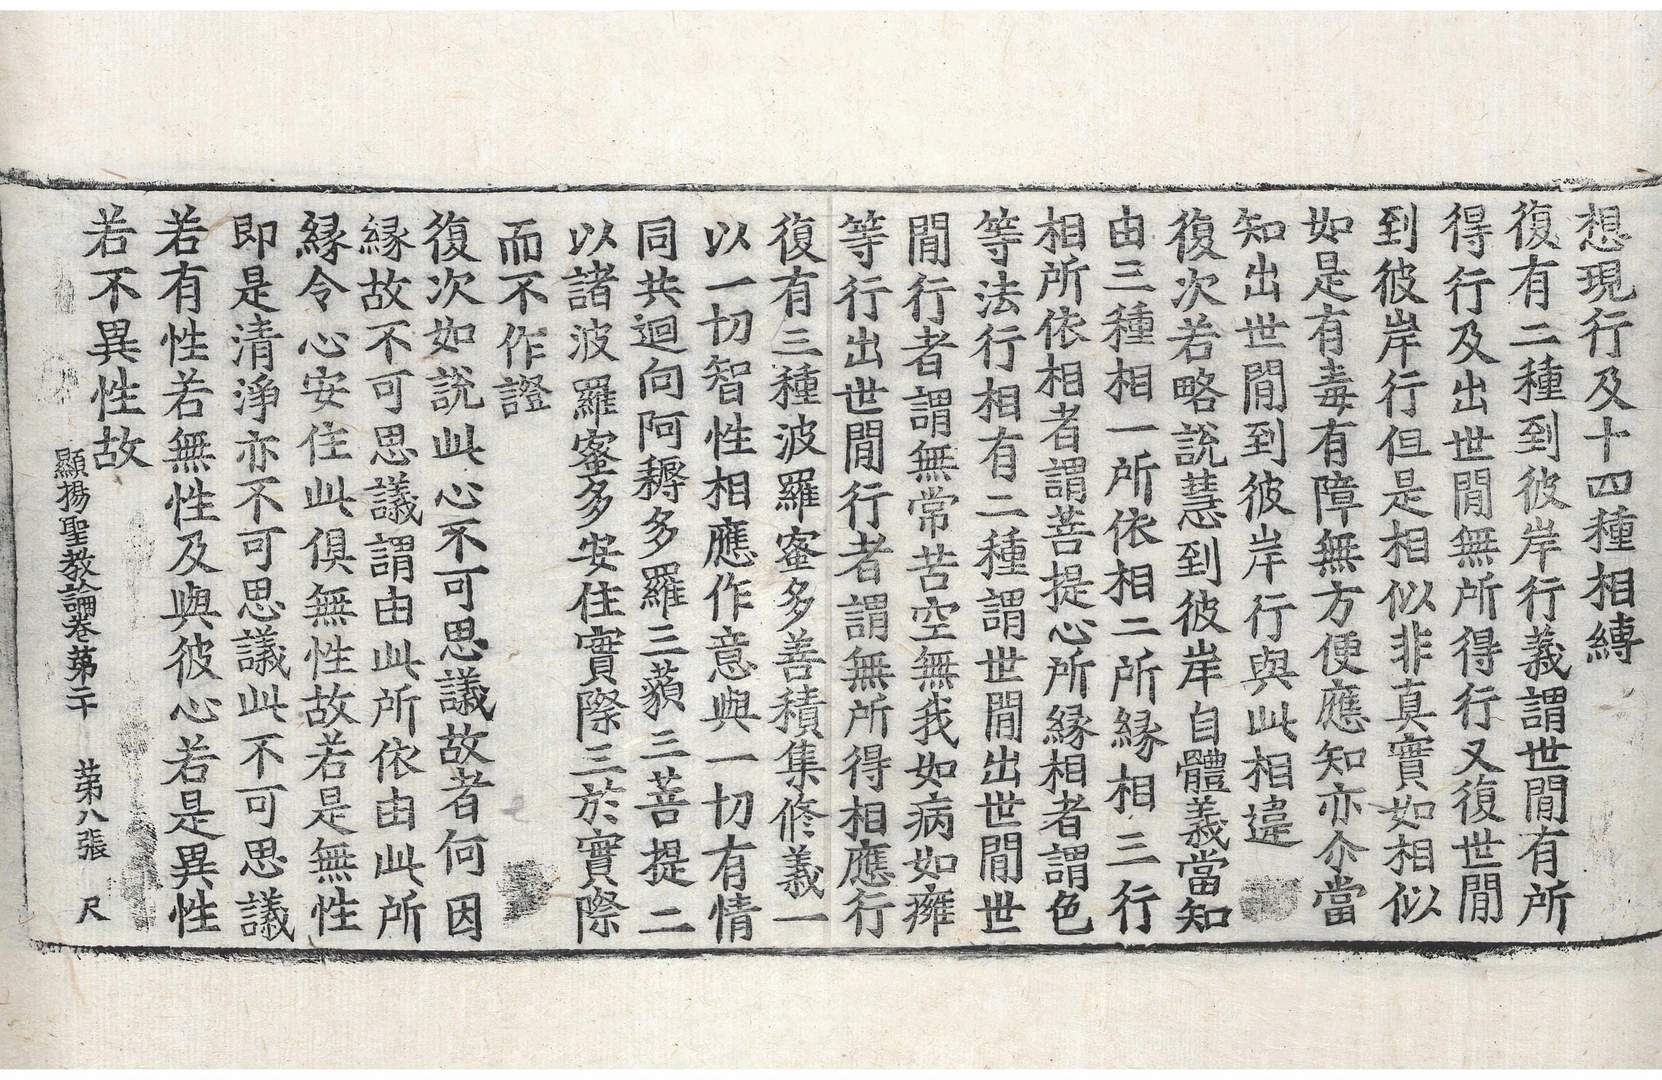 想現行及十四種相縛
復有二種到彼岸行義謂世閒有所
得行及出世閒無所得行又復世閒
到彼岸行但是相似非真實如相似
如是有毒有障無方便應知亦尒當
知出世閒到彼岸行與此相違
復次若略說慧到彼岸自體義當知
由三種相一所依相二所縁相三行
相所依相者謂菩提心所縁相者謂色
等法行相有二種謂世閒出世閒世
閒行者謂無常苦空無我如病如癰
等行出世閒行者謂無所得相應行
復有三種波羅蜜多善積集修義一
以一切智性相應作意與一切有情
同共迴向阿耨多羅三藐三菩提二
以諸波羅蜜多安住實際三於實際
而不作證
復次如說此心不可思議故者何因
縁故不可思議謂由此所依由此所
縁令心安住此俱無性故若是無性
即是清淨亦不可思議此不可思議
若有性若無性及與彼心若是異性
若不異性故
顯揚聖教論卷第二十 第八張 尺